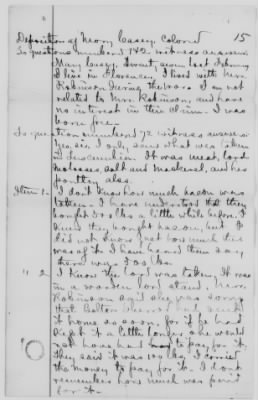 15
Deposition of Mary Casey Colored
To questions numbered 1 & 2 witness answers
Mary Casey. Twenty seven last February
I live in Florence. I lived with Mrs.
Robinson during the war. I am not
related to Mrs. Robinson, and have
no interest in this claim. I was
born free.
To question numbered 72 witness answers
Yes, sir, I only seen what was taken
in December. It was meat, lard
molasses, salt and Mackerel, and her
poultry also.
Item 1. I don't know how much bacon was
taken. I have understood that they
bought 500 lbs a little while before. I
knew they bought bacon, but I
did not know just how much there
was of it. I have heard them say
there was 500 lbs.
" 2 I know the lard was taken. It was
in a wooden lard stand. Mrs.
Robinson said she was sorry
that had brought
it home so soon, for if he had
kept it a little longer she would
not have had to pay for it.
They said it was 100 lbs. I carried
the money to pay for it. I don't
remember how much was paid
for it.